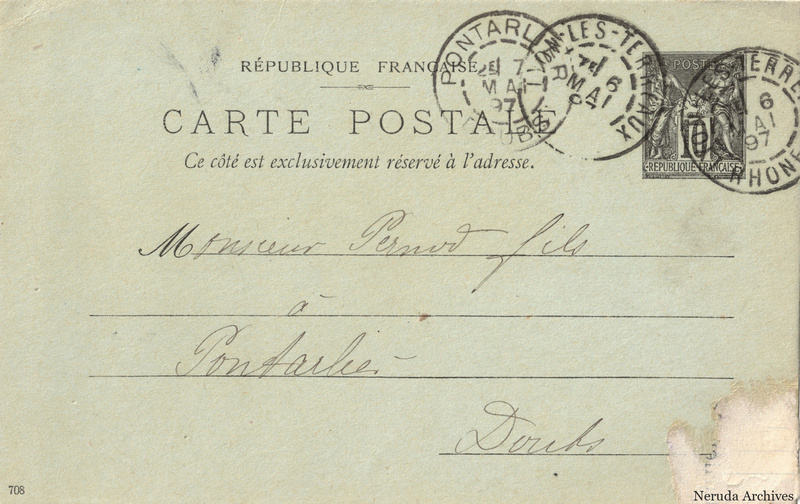 RÉPUBLIQUE FRANÇAISE
CARTE POSTALE
Ce côté est exclusivement réservé à l'adresse.
PONTARLIER
2E 7
MAI
97
DOUBS
LES-TERREAUX
7E 6
MAI
POSTE
10
RÉPUBLIQUE FRANÇAISE
LES-TERRE
6
MAI
97
RHONE
Monsieur Pernod fils
à
Pontarlier
Doubs
708
Neruda Archives